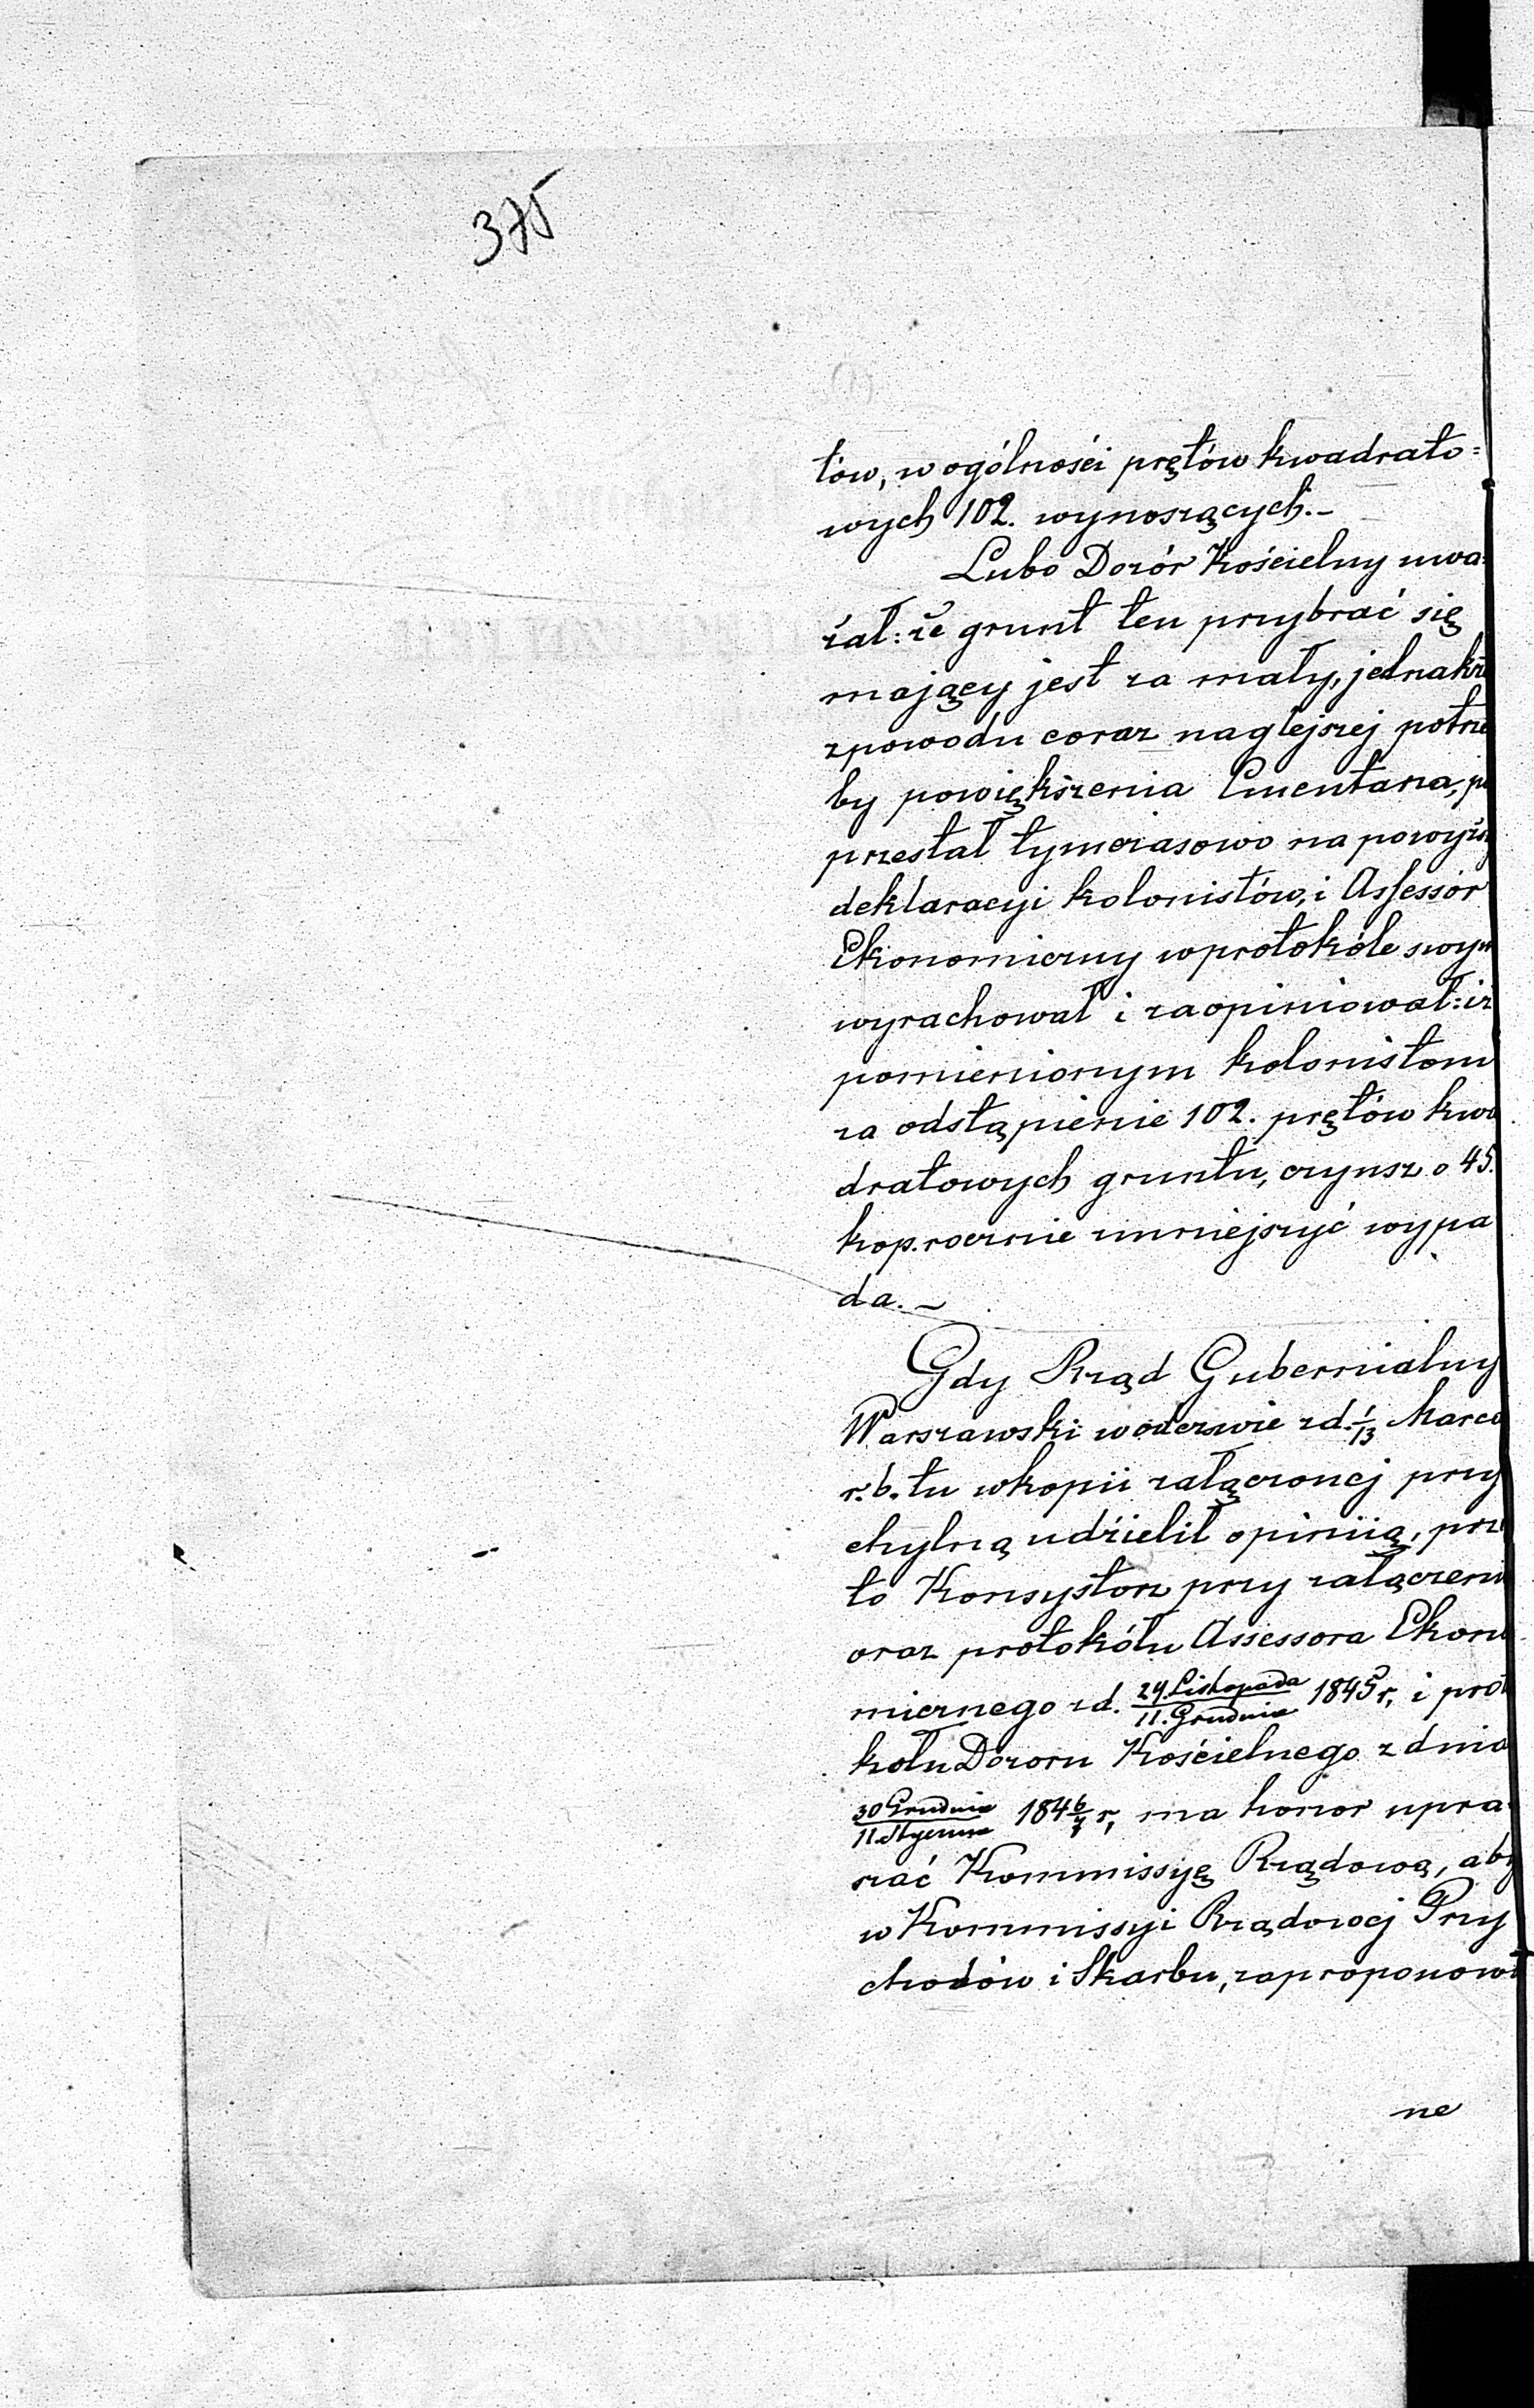 375
tów, w ogólności prętów kwadrato=
wych 102. wynoszących.–
Lubo Dozór Kościelny uwa=
żał: że grunt ten przybrać się
mający jest za mały, jednakże
z powodu coraz naglejszej potrze
by powiększenia Cmentarza, po
przestał tymczasowo na powyższ
deklaracyi kolonistów, i Assessor
Ekonomiczny w protokóle swym
wyrachował i zaopiniował: iż
pomienionym kolonistom
za odstąpienie 102. prętów kwa
dratowych gruntu, czynsz o 45.
kop. rocznie zmniejszyć wypa
da. –
Gdy Rząd Gubernialny
Warszawski w odezwie z d. 1/13 Marca
r. b. tu w kopii załączonej przy
chylną udzielił opiniią, prze
to Konsystorz przy załączeni
oraz protokółu Assessora Ekono
micznego z d. 29 Listopada/11. Grudnia 1845 r, i proto
kołu Dozoru Kościelnego z dnia
30 Grudnia/11 Stycznia 184 6/7 r, ma honor upra=
szać Kommissyę Rządową, aby
w Kommissyi Rządowej Przy
chodów i Skarbu, zaproponowa
ne